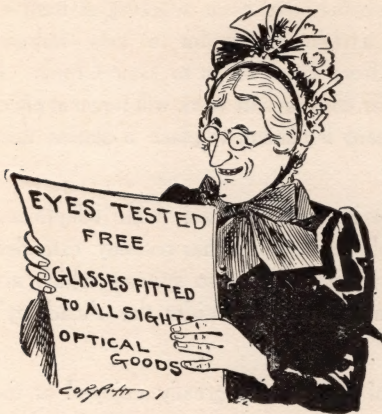 EYES TESTED
FREE
GLASSES FITTED
TO ALL SIGHTS
OPTICAL
GOODS
COPYRIGHT